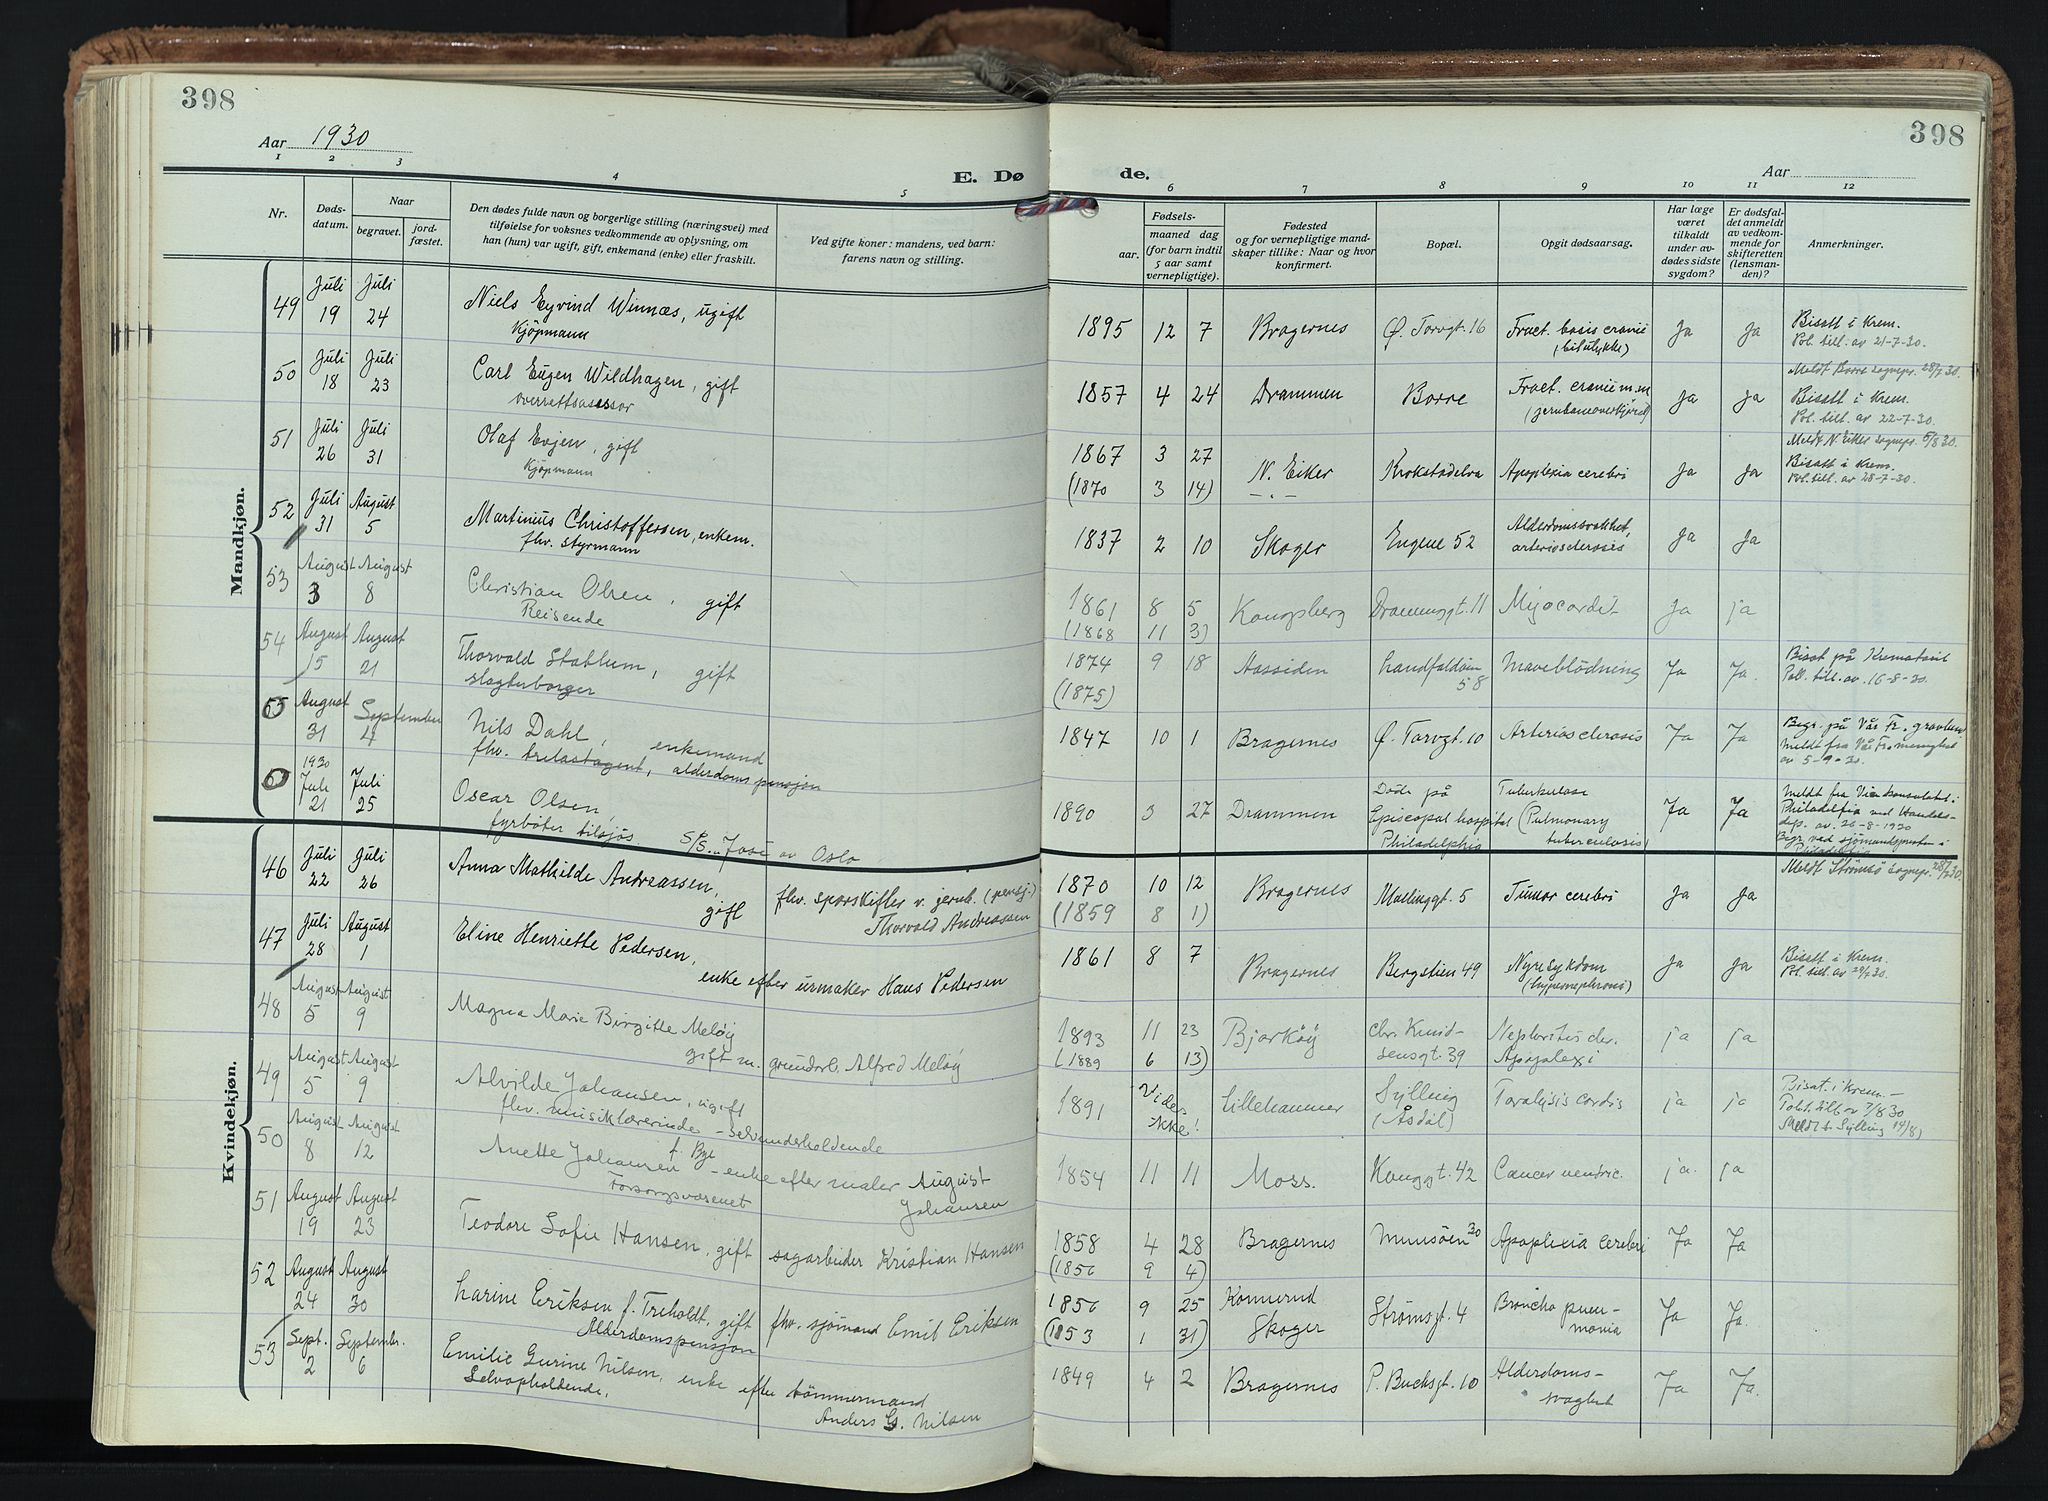 398
398
Aar 1930
Aar
1 2 3 4 5 6 7 8 9 10 11 12
E. Dø de.
Nr.
Døds-
datum.
Naar
begravet.
jord-
fæstet.
Den dødes fulde navn og borgerlige stilling (næringsvei) med
tilføielse for voksnes vedkommende av oplysning, om
han (hun) var ugift, gift, enkemand (enke) eller fraskilt.
Ved gifte koner: mandens, ved barn:
farens navn og stilling.
Fødsels-
aar.
maaned dag
(for barn indtil
5 aar samt
vernepligtige).
Fødested
og for vernepligtige mand-
skaper tillike: Naar og hvor
konfirmert.
Bopæl.
Opgit dødsaarsag.
Har læge
været
tilkaldt
under av-
dødes sidste
sygdom?
Er dødsfal-
det anmeldt
av vedkom-
mende for
skifteretten
(lensman-
den)?
Anmerkninger.
Mandkjøn.
49 Juli 19 Juli 24 Niels Eyvind Winnæs, ugift
Kjöpmann
1895 12 7 Bragernes Ø. Torvgt. 16 Fract. basis cranii
(bilulykke) Ja Ja Bisatt i Krem.
Pol. till. av 21-7-30.
50 Juli 18 Juli 23 Carl Eugen Wildhagen, gift
Overrettsasessor
1857 4 24 Drammen Borre Fract. cranii m.m
(jernbaneoverkjörsel) Ja Ja Meldt Borre sognepr. 28/7 30.
Bisatt i Krem.
Pol. till. av 22-7-30.
51 Juli 26 Juli 31 Olaf Evjen, gift
Kjöpmann
1867 3 27 N. Eiker Krokstadelva Apoplexia cerebri Ja Ja Meldt N. Eiker sognepr. 5/8 30.
(1870 3 14) Bisatt i Krem.
Pol. till. av 28-7-30.
52 Juli 31 August 5 Martinius Christoffersen, enkem.
fhv. styrmann
1837 2 10 Skoger Engene 52 Alderdomssvakhet,
arteriosclerosis Ja Ja
53 August 3 August 8 Christian Olsen, gift
Reisende
1861 8 5 Kongsberg Drammensgt. 11 Myocardit Ja ja
(1868 11 3)
54 August 15 August 21 Thorvald Stablum, gift
slagterborger
1874 9 18 Aassiden Landfaldöen
58 Maveblödning Ja Ja. Bisat på Krematoriet
(1875) Poll. till. av. 16-8-30.
55 August 31 September 4 Nils Dahl, enkemand
fhv. trelastagent, alderdoms pensjon
1847 10 1 Bragernes Ø. Torvgt. 10 Arteriosclerosis Ja Ja Begr. på Vår Fr. gravlund
Meldt fra Vår Fr. menighet
av 5-9-30.
0 1930 Juli 21 Juli 25 Oscar Olsen,
fyrböter tilsjös S/S. Jose av Oslo
1890 3 27 Drammen Döde på
Episcopal hospital
Philadelphia Tuberkulose
(Pulmonary
tuberculosis) Ja Ja Meldt fra Visekonsulatet i
Philadelfia ved Handels-
dep. av 26-8-1930
Begr. ved sjömandspresten i
Philadelfia
Kvindekjøn.
46 Juli 22 Juli 26 Anna Mathilde Andreassen,
gift fhv. sporskifter v. jernb. (pensj.)
Thorvald Andreassen
1870 10 12 Bragernes Mallinggt. 5 Tumor cerebri Ja Ja Meldt Strömsö sognepr. 28/7 30.
(1859 8 1)
47 Juli 28 August 1 Eline Henriette Pedersen,
enke efter urmaker Hans Pedersen
1861 8 7 Bragernes Bergstien 49 Nyresykdom
(hypernephrons) Ja Ja Bisatt i Krem.
Pol. till. av 29/7 30.
48 August 5 August 9 Magna Marie Birgitte Meløy
gift m. grundarb. Alfred Meløy
1893 11 23 Bjarkøy Chr. Knud-
sensgt. 39 Nephritis chr.
Apoplexi ja ja
(1889 6 13)
49 August 5 August 9 Alvilde Johansen, ugift
fhv. musiklærerinde - selvunderholdende
1891 Vides
ikke! Lillehammer Sylling
(Åsdal) Paralysis cordis ja ja Bisat. i Krem. -
Polit. till av 7/8 30
Meldt t. Sylling 14/8)
50 August 8 August 12 Anette Johansen f. Bye - enke efter maler August
Johansen
Forsorgsvæsenet
1854 11 11 Moss. Konggt. 42 Cancer ventric. ja. ja
51 August 19 August 23 Teodore Sofie Hansen, gift sagarbeider Kristian Hansen
1858 4 28 Bragernes Muusöen 30 Apoplexia cerebri Ja Ja
(1856 9 4)
52 August 24 August 30 Larine Eriksen f. Treholdt, gift fhv. sjömand Emil Eriksen
Alderdomspensjon
1856 9 25 Konnerud
Skoger Strömsgt. 4 Broncho pneu-
monia Ja Ja.
(1853 1 31)
53 Sept. 2 September. 6 Emilie Gurine Nilsen, enke efter tömmermand
Anders G. Nilsen
Selvopholdende,
1849 4 2 Bragernes P. Bucksgt. 10 Alderdoms-
svaghet Ja Ja.